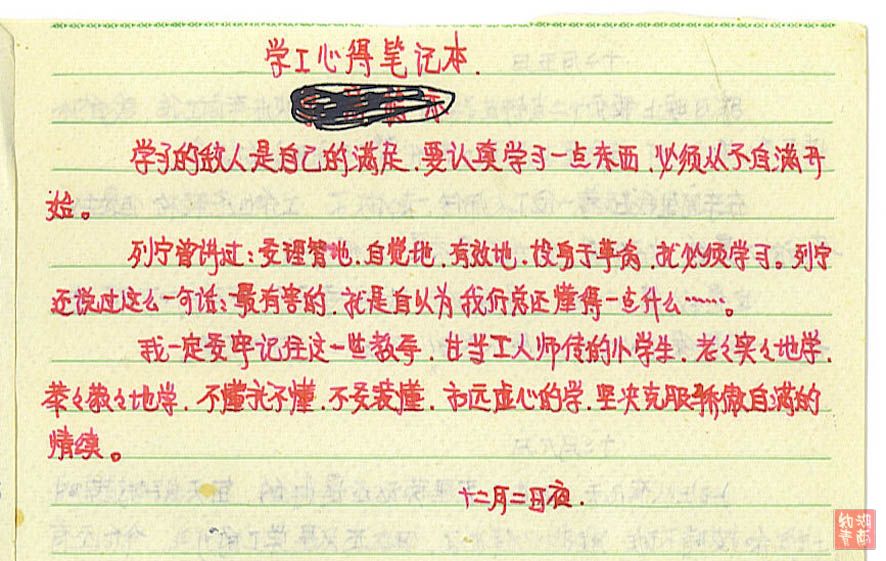 学工心得笔记本.
学习的敌人是自己的满足,要认真学习一点东西,必须从不自满开
始。
列宁曾讲过:要理智地,自觉地,有效地,投身于革命,就必须学习。列宁
还说过这么一句话:最有害的,就是自以为我们总还懂得一点什么……。
我一定要牢记住这一些教导,甘当工人师傅的小学生,老々实々地学,
恭々敬々地学,不懂就不懂,不要装懂,永远虚心的学,坚决克服骄傲自满的
情绪。
十二月二日夜.